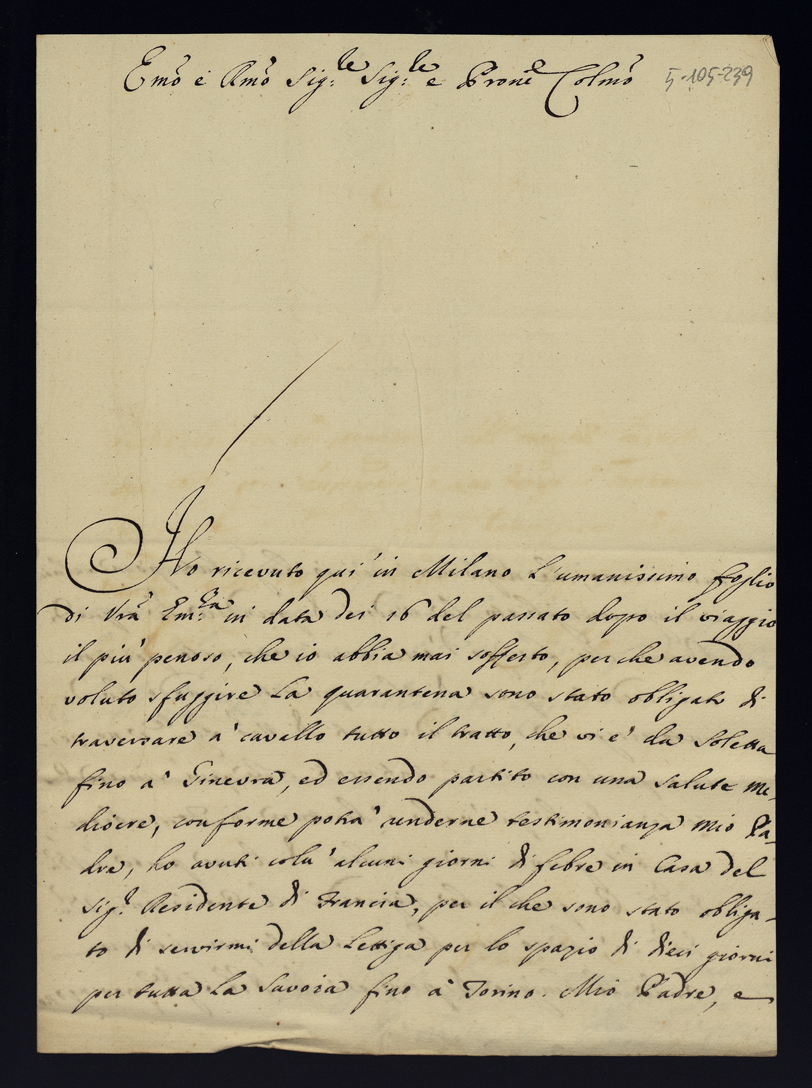 Emõ e Rmõ Sig:re Sig:re e Pronẽ Colmõ
5-105-239
Ho ricevuto qui in Milano l'umanissimo foglio
di Vrã Em:za in data dei 16 del passato dopo il viaggio
il più penoso, che io abbia mai sofferto, perche avendo
voluto sfuggire la quarantena sono stato obligato di
traversare à cavallo tutto il tratto, che vi è da Soletta
fino à Ginevra, ed essendo partito con una salute me-
diocre, conforme potrà renderne testimonianza mio Pa-
dre, ho avuti colà alcuni giorni di febre in Casa del
Sig:r Residente di Francia, per il che sono stato obliga-
to di servirmi della Lettiga per lo spazio di dieci giorni
per tutta la Savoia fino à Torino. Mio Padre, e